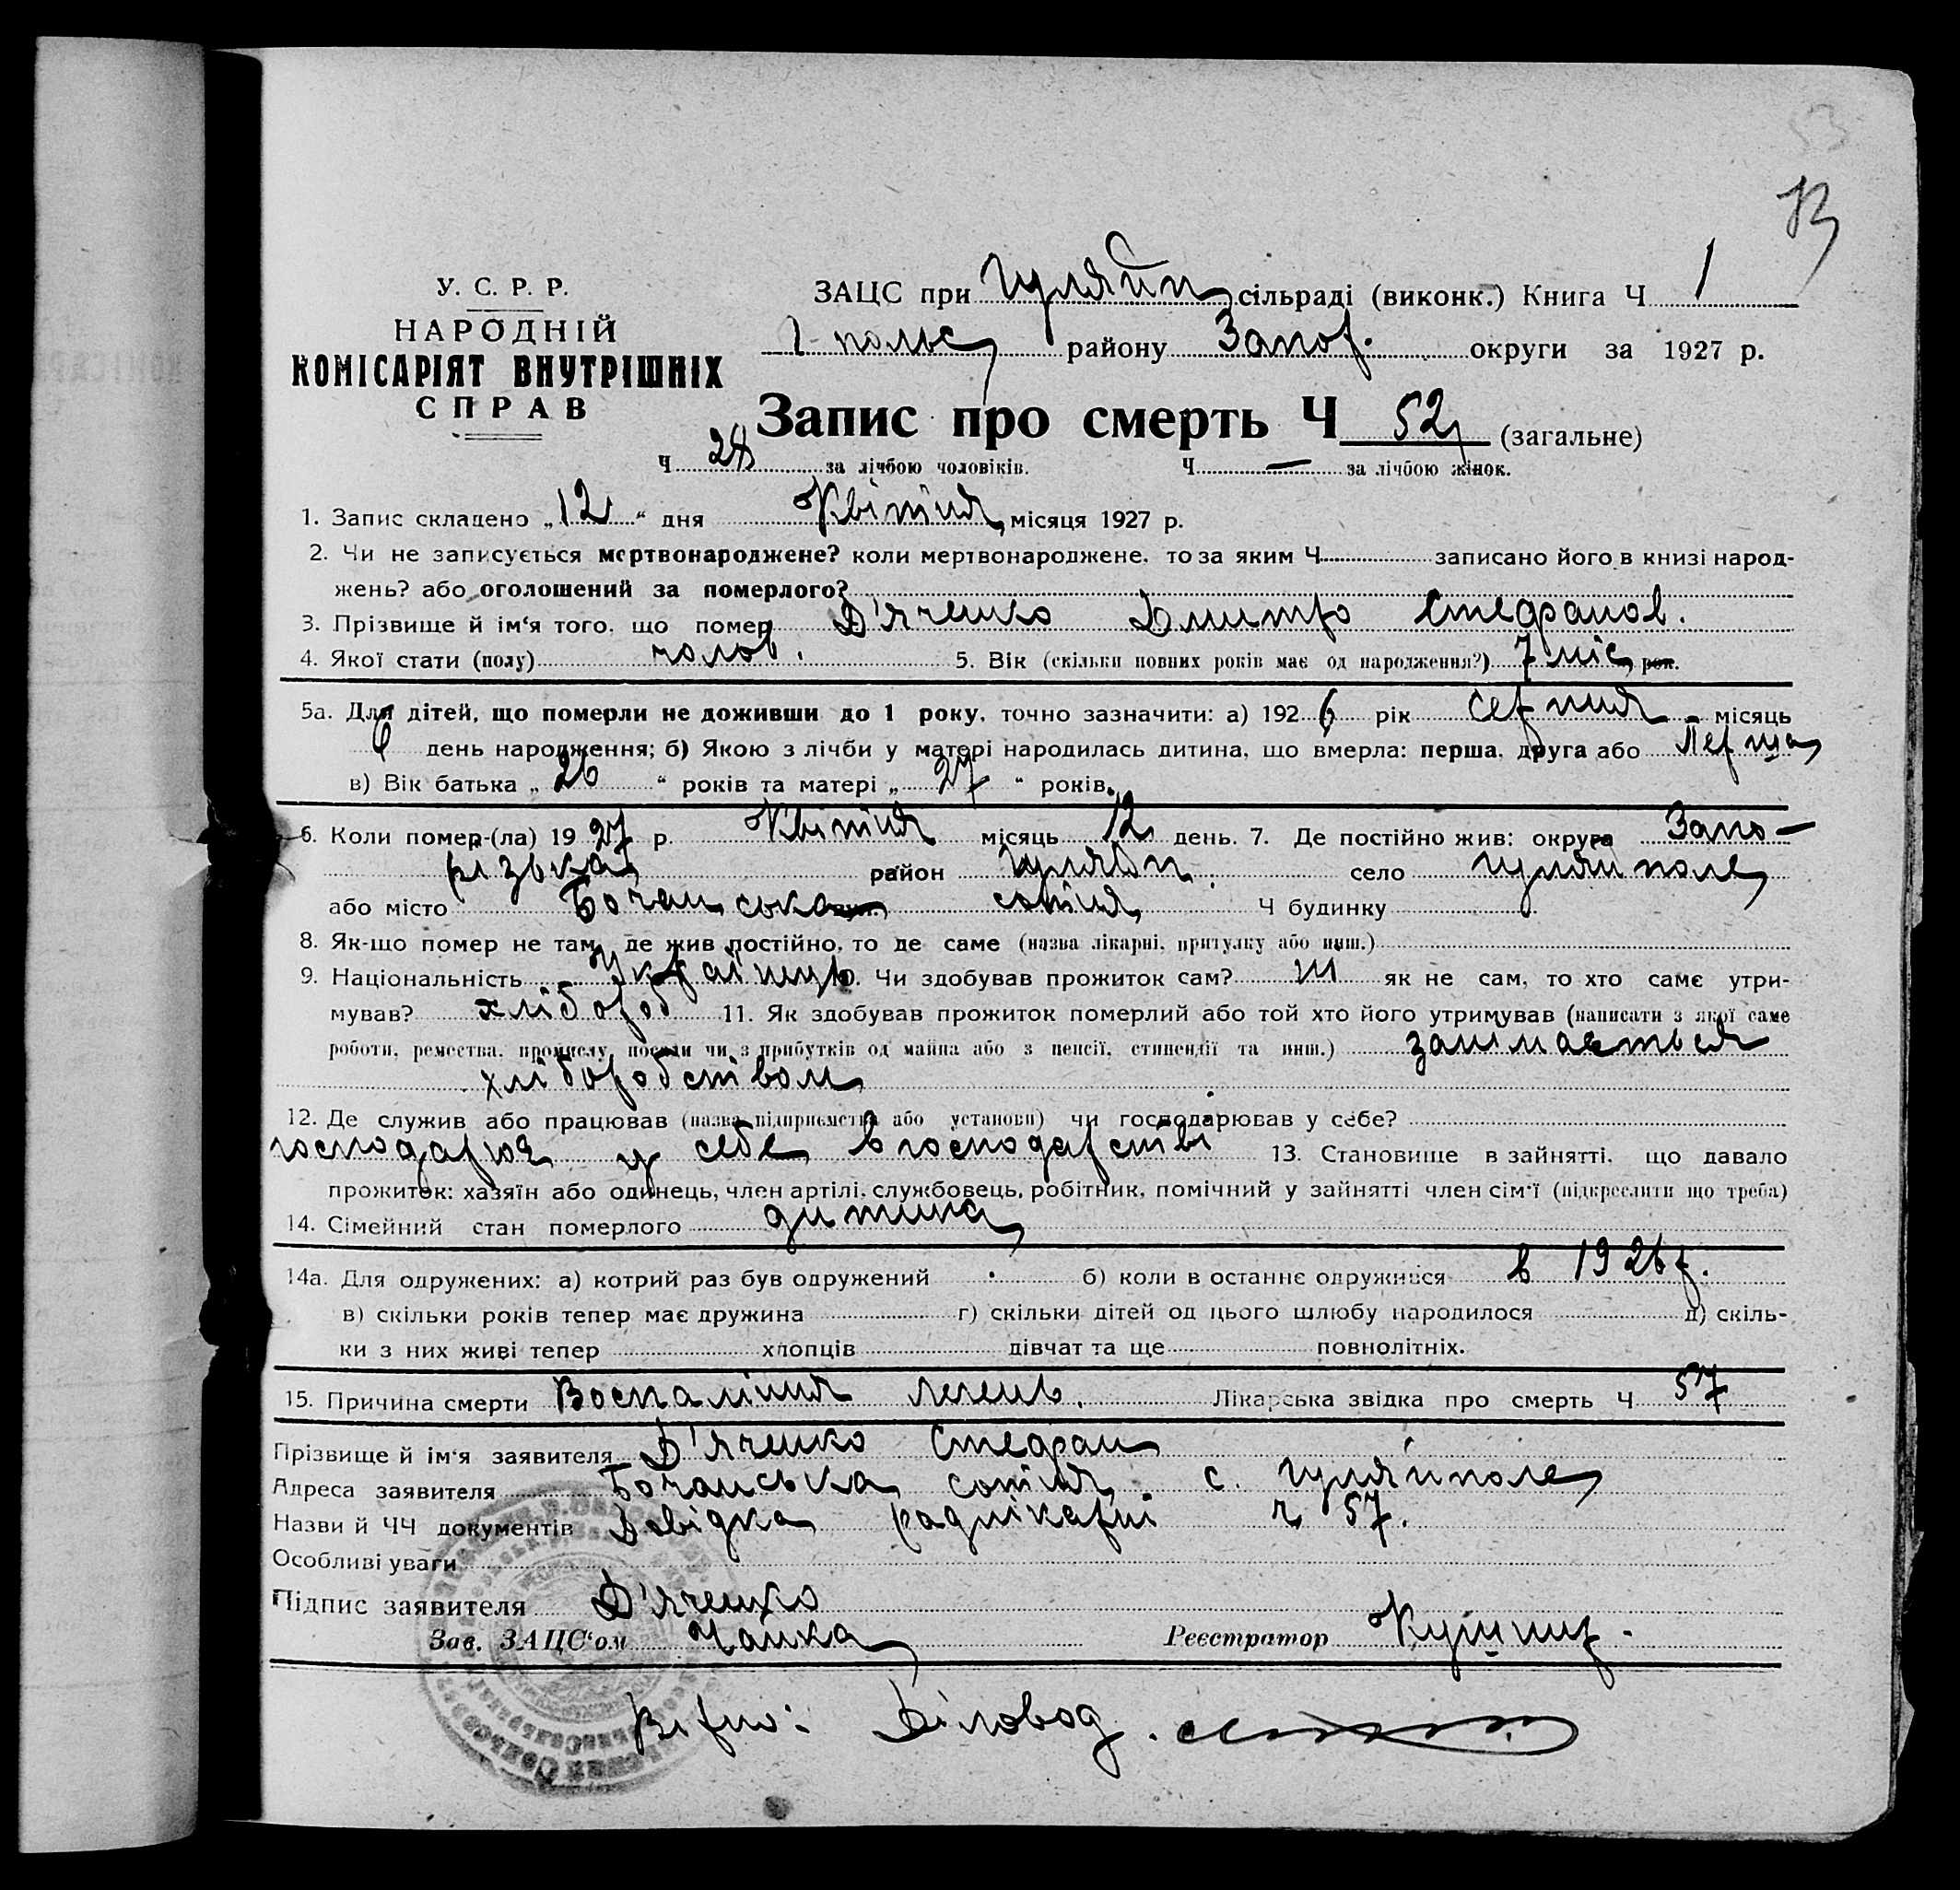 53
13
У. С. Р. Р.
НАРОДНІЙ
КОМІСАРІЯТ ВНУТРІШНІХ
СПРАВ
ЗАЦС при Гуляйп сільраді (виконк.) Книга Ч 1
Г-польс району Запор. округи за 1927 р.
Запис про смерть Ч 52 (загальне)
Ч 28 за лічбою чоловіків. Ч — за лічбою жінок.
1. Запис складено „12“ дня Квітня місяця 1927 р.
2. Чи не записується мертвонароджене? коли мертвонароджене, то за яким Ч записано його в книзі народ-
жень? або оголошений за померлого?
3. Прізвище й ім'я того, що помер Д'яченко Дмитро Стефанов.
4. Якої стати (полу) чолов. 5. Вік (скільки повних років має од народження?) 7 міс рок.
5а. Для дітей, що померли не доживши до 1 року, точно зазначити: а) 1926 рік серпня місяць
6 день народження; б) Якою з лічби у матері народилась дитина, що вмерла: перша, друга або Перша
в) Вік батька „26“ років та матері „27“ років.
6. Коли помер-(ла) 1927 р. Квітня місяць 12 день. 7. Де постійно жив: округа Запо-
різька район Гуляйп. село Гуляйполе
або місто Бочанська вул. сотня Ч будинку
8. Як-що помер не там, де жив постійно, то де саме (назва лікарні, притулку або инш.)
9. Національність Українець 10. Чи здобував прожиток сам? ні як не сам, то хто саме утри-
мував? хлібороб 11. Як здобував прожиток померлий або той хто його утримував (написати з якої саме
роботи, ремества, промислу, посади чи з прибутків од майна або з пенсії, стипендії та инш.) занімається
хліборобством
12. Де служив або працював (назва підприємства або установи) чи господарював у себе?
господарює у себе в господарстві 13. Становище в зайнятті, що давало
прожиток: хазяїн або одинець, член артілі, службовець, робітник, помічний у зайнятті член сім'ї (підкреслити що треба)
14. Сімейний стан померлого дитина
14а. Для одружених: а) котрий раз був одружений б) коли в останнє одружився в 1926 р.
в) скільки років тепер має дружина г) скільки дітей од цього шлюбу народилося д) скіль-
ки з них живі тепер хлопців дівчат та ще повнолітніх.
15. Причина смерти Воспаління легень. Лікарська звідка про смерть Ч 57
Прізвище й ім'я заявителя Д'яченко Стефан
Адреса заявителя Бочанська сотня. с. Гуляйполе
Назви й ЧЧ документів Довідка радлікарні ч 57.
Особливі уваги
Підпис заявителя Д'яченко
Зав. ЗАЦС'ом Чайка Реєстратор
Вірно: Діловод.